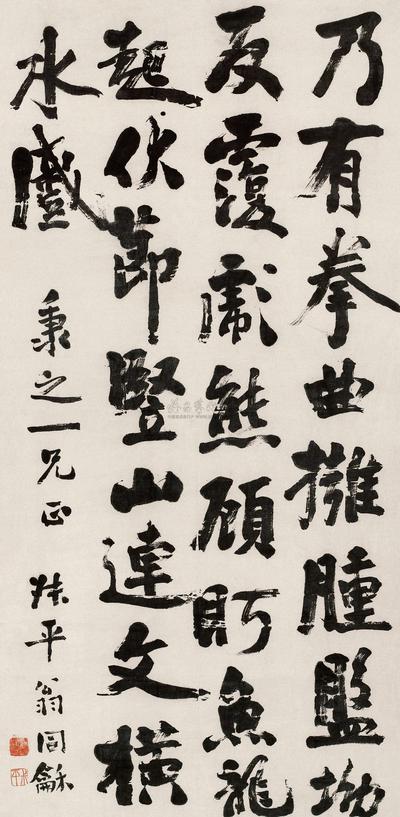 乃有拳曲擁腫盤坳
反覆彪熊顧盻魚龍
起伏節豎山連文橫
水蹙
秉之一兄正 叔平翁同龢